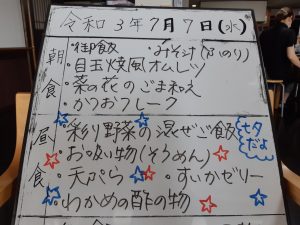 令和3年7月7日(水)
朝食
・御飯 ・みそ汁(ふのり)
・目玉焼風オムレツ
・菜の花のごま和え
・かつおフレーク
昼食
・彩り野菜の混ぜご飯
七夕だよ
・お吸い物(そうめん)
・天ぷら ・すいかゼリー
・わかめの酢の物